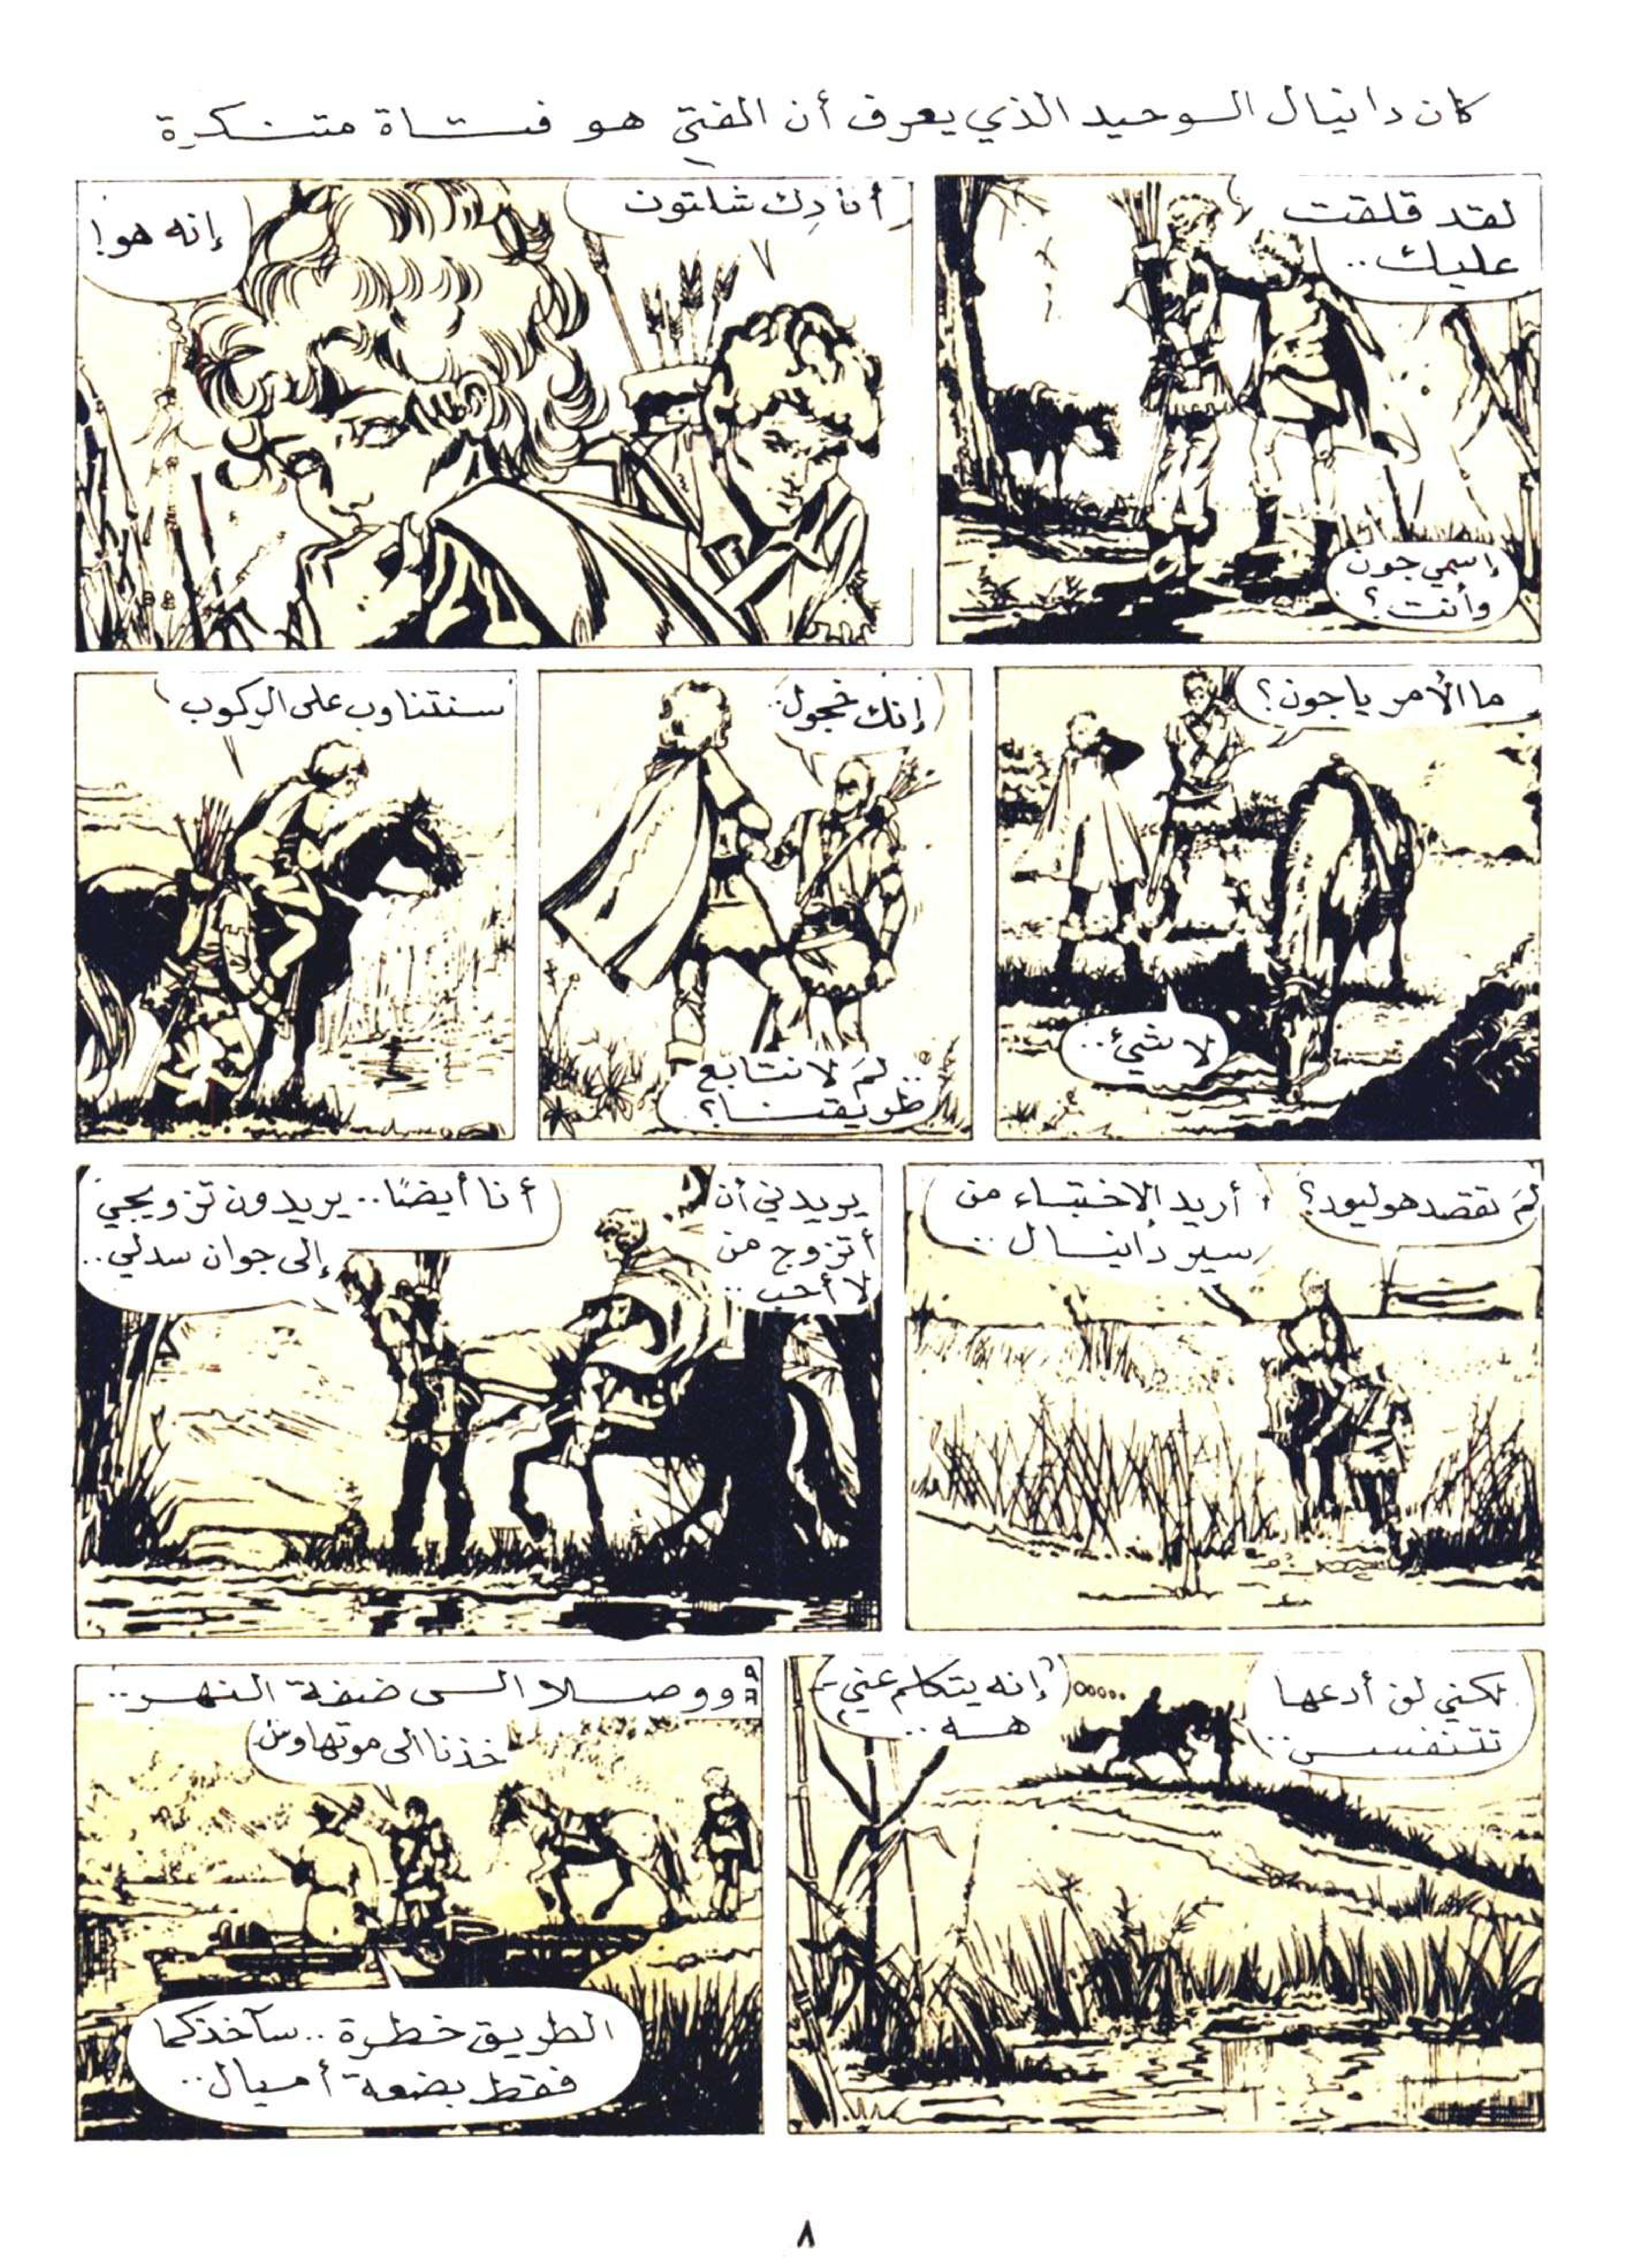 كان دانيال الوحيد الذي يعرف أن الفتى هو فتاة متنكرة
لقد قلقت
عليك..
إسمي جون
وأنت؟
أنا دِك شلتون
إنه هو!
ما الأمر يا جون؟
لا شيئ..
إنك خجول..
.. لمَ لا نتابع
طريقنا؟
سنتناوب على الركوب
لمَ تقصد هوليود؟
أريد الإختباء من
سير دانيال ..
يريدني أن
أتزوج من
لا أحب ..
أنا أيضًا.. يريدون تزويجي
إلى جوان سدلي..
لكني لن أدعها
تتنفس..
إنه يتكلم عني
هه..
ووصلا الى ضفة النهر..
خذنا الى موتهاوس
الطريق خطرة.. سآخذكما
فقط بضعة أميال..
٨